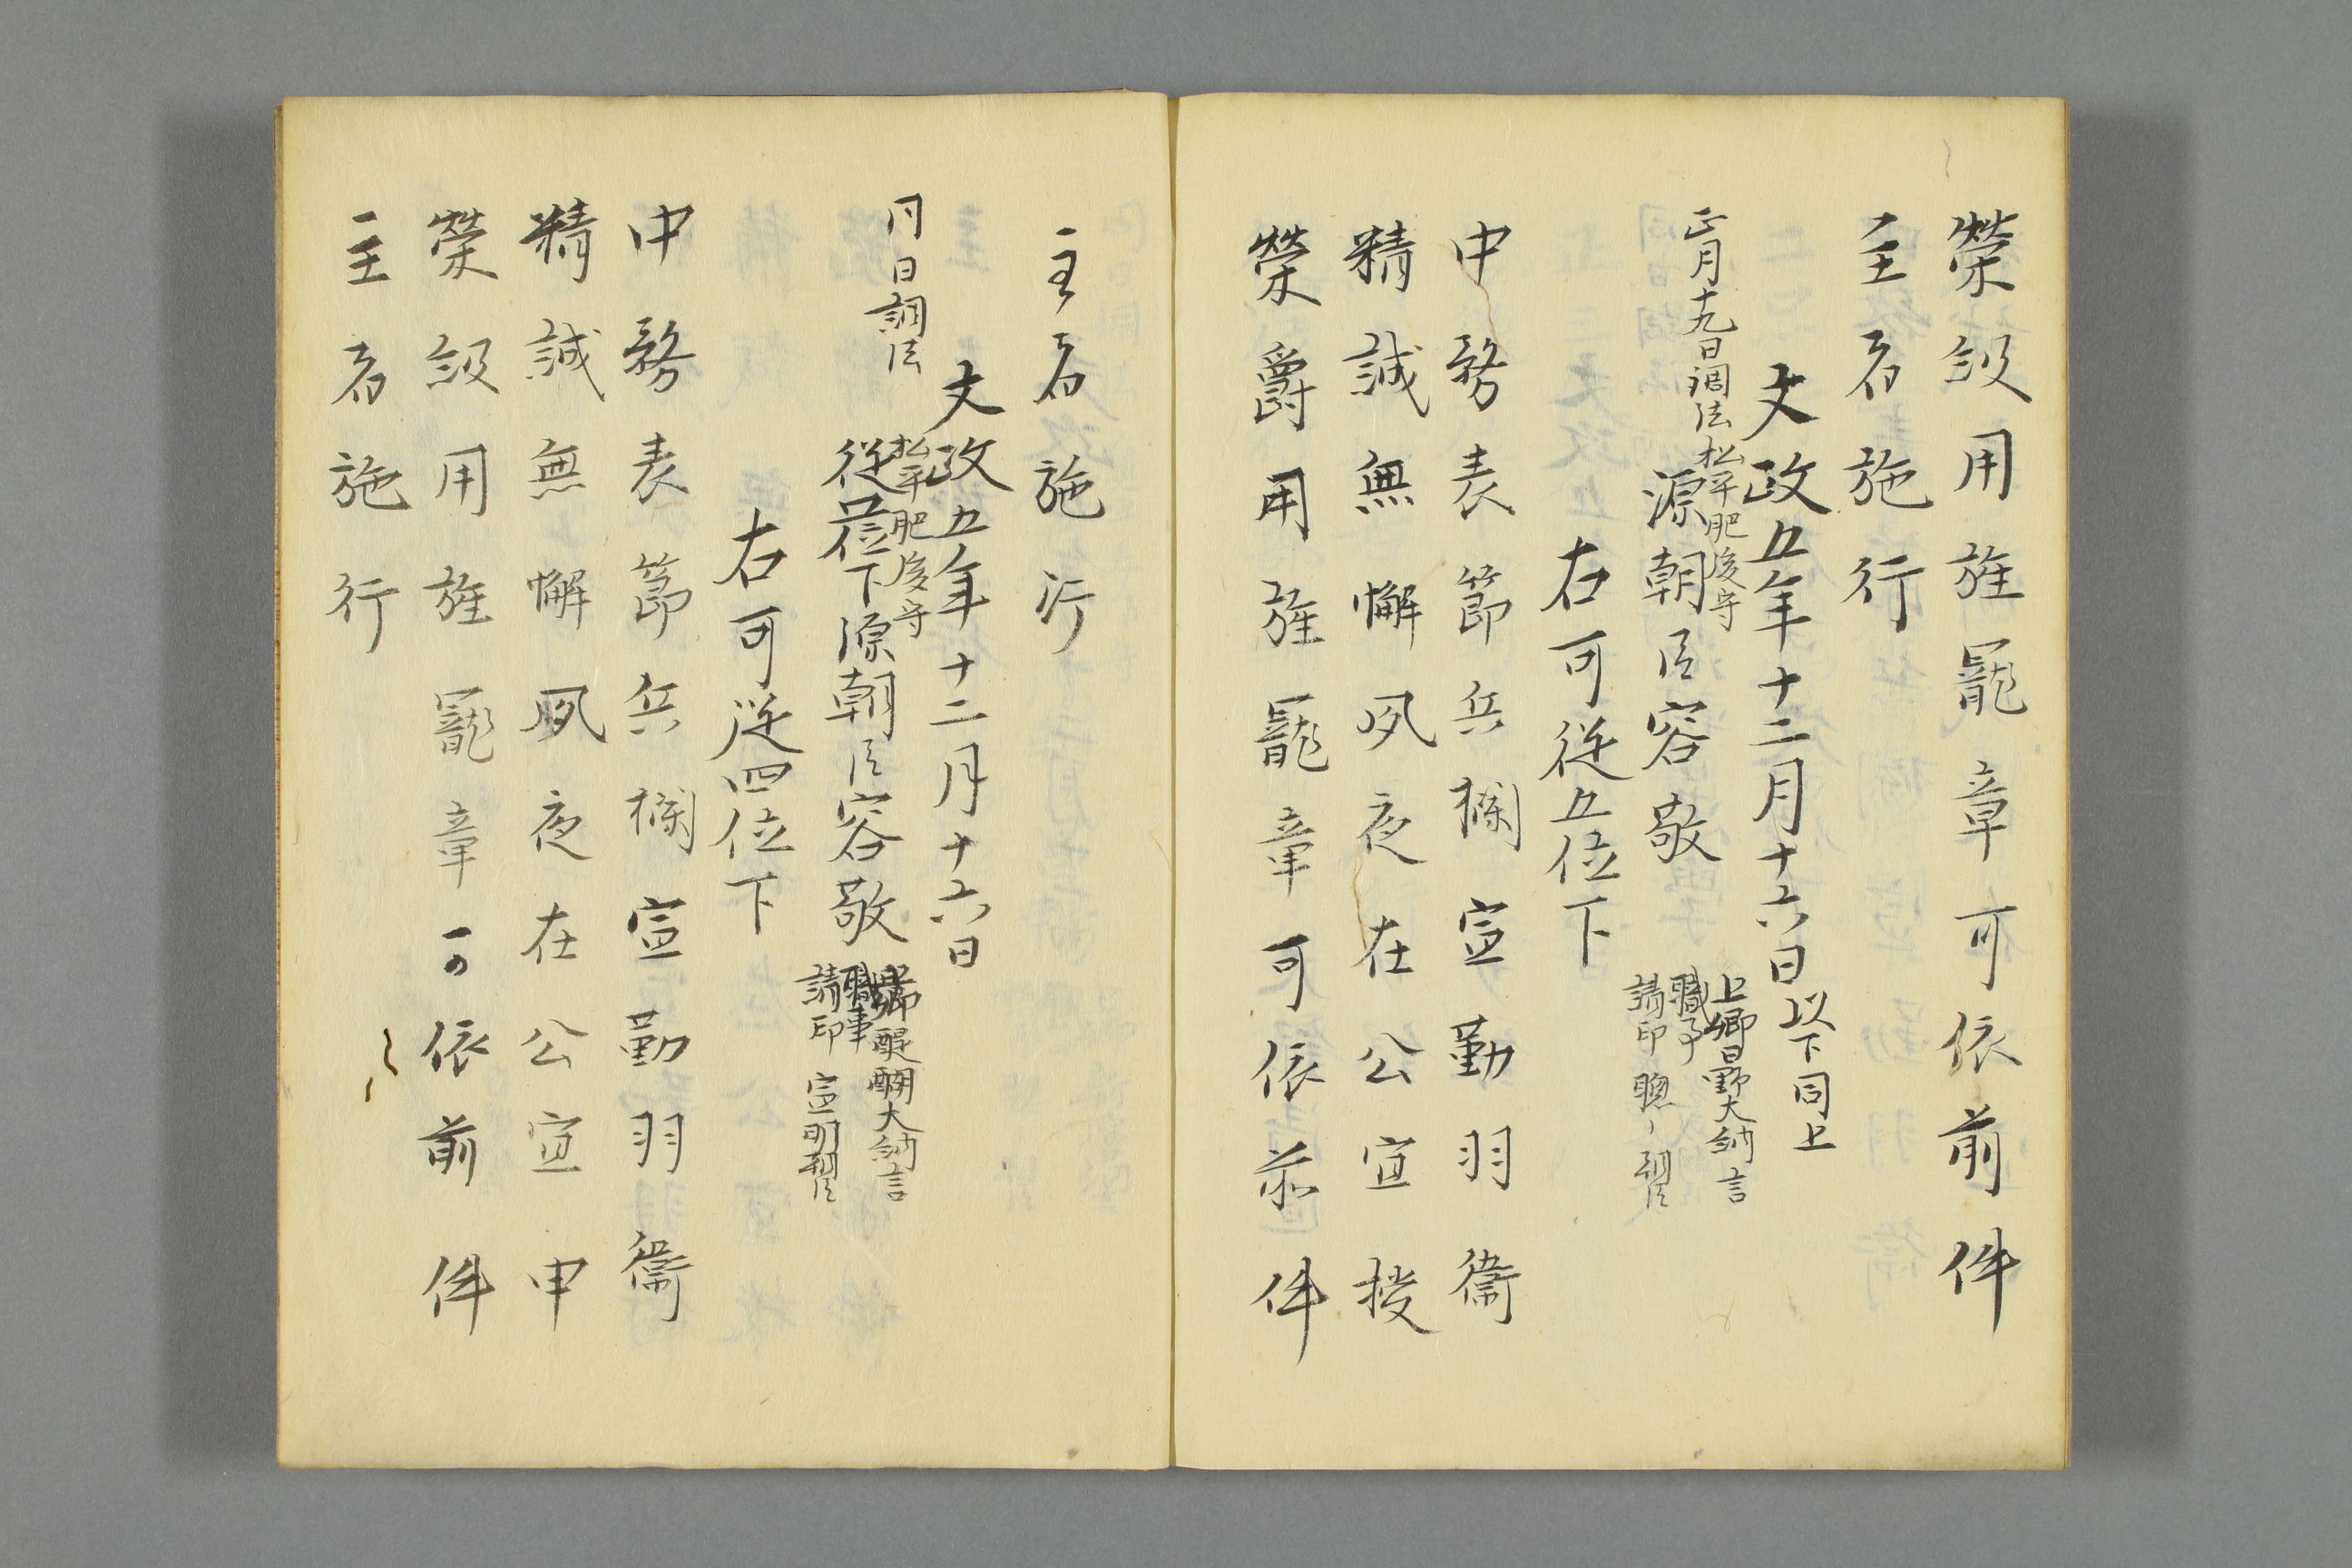 榮級用旌寵章可依前件
主者施行
文政五年十二月十六日以下同上
正月十九日調法
松平肥後守
源朝臣容敬
上卿日野大納言
職事
請印
右可従五位下
中務表節兵欄宣勤羽衞
精誠無懈夙夜在公宜授
榮爵用旌寵章可依前件
主者施行
文政五年十二月十六日
同日調法
松平肥後守
従五位下源朝臣容敬
上卿醍醐大納言
職事
請印 宣明
右可従四位下
中務表節兵欄宣勤羽衞
精誠無懈夙夜在公宜申
榮級用旌寵章可依前件
主者施行